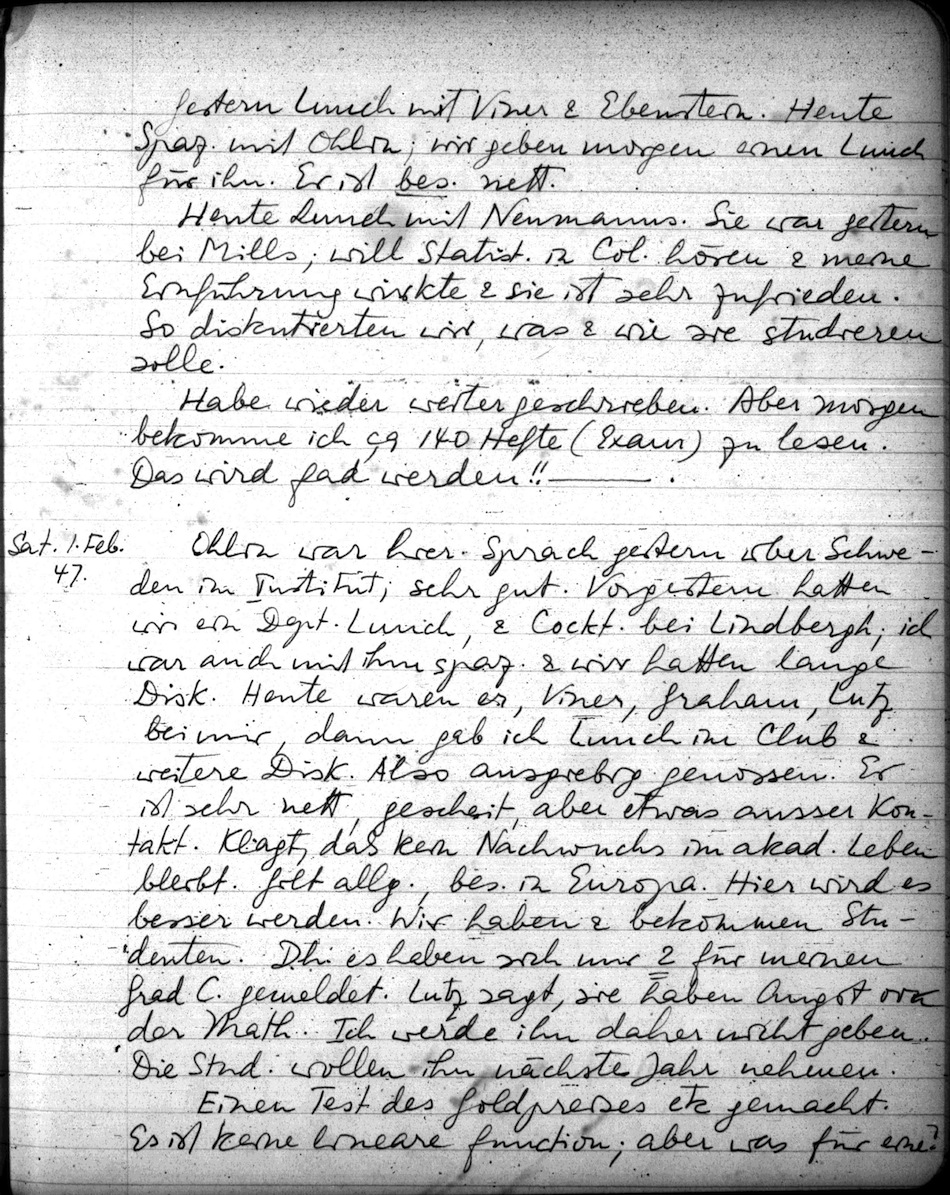 Gestern Lunch mit Viner & Ebenstein. Heute
Spaz. mit Ohlin; wir geben morgen einen Lunch
für ihn. Er ist bes. nett.
Heute Lunch mit Neumanns. Sie war gestern
bei Mills, will Statist. in Col. hören & meine
Einführung wirkte & sie ist sehr zufrieden.
So diskutierten wir, was & wie sie studieren
solle.
Habe wieder weiter geschrieben. Aber morgen
bekomme ich ca 140 Hefte (Exam) zu lesen.
Das wird fad werden!! ——— .
Sat. 1. Feb.
47.
Ohlin war hier. Sprach gestern über Schwe-
den im Institut; sehr gut. Vorgestern hatten
wir ein Dept. Lunch, & Cockt. bei Lindbergh; ich
war auch mit ihm spaz. & wir hatten lange
Disk. Heute waren er, Viner, Graham, Lutz
bei mir, dann gab ich Lunch im Club &
weitere Disk. Also ausgiebig genossen. Er
ist sehr nett, gescheit, aber etwas ausser Kon-
takt. Klagt, daß kein Nachwuchs im akad. Leben
bleibt. Gilt allg., bes. in Europa. Hier wird es
besser werden. Wir haben & bekommen Stu-
denten. D.h. es haben sich nur 2 für meinen
Grad C. gemeldet. Lutz sagt, sie haben Angst vor
der Math. Ich werde ihn daher nicht geben.
Die Stud. wollen ihn nächstes Jahr nehmen.
Einen Test des Goldpreises etc gemacht.
Es ist keine lineare function; aber was für eine?